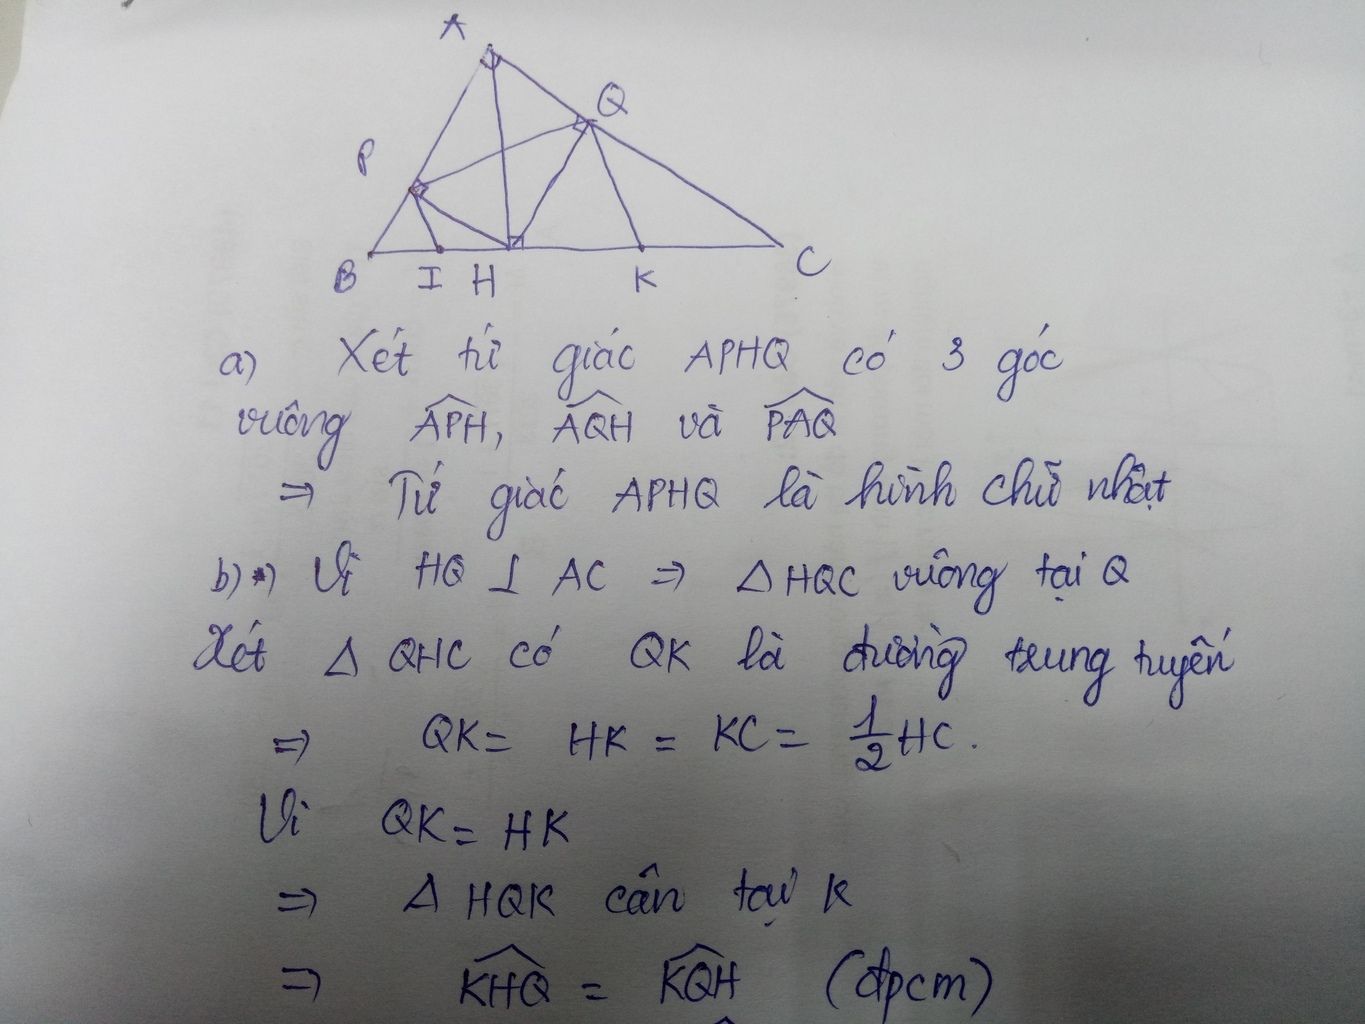 A
Q
P
B I H K C
a) Xét tứ giác APHQ có 3 góc
vuông \widehat{APH}, \widehat{AQH} và \widehat{PAQ}
⇒ Tứ giác APHQ là hình chữ nhật
b) *) Vì HQ ⊥ AC ⇒ Δ HQC vuông tại Q
Xét Δ QHC có QK là đường trung tuyến
⇒ QK = HK = KC = \frac{1}{2} HC.
Vì QK = HK
⇒ Δ HQK cân tại K
⇒ \widehat{KHQ} = \widehat{KQH} (đpcm)